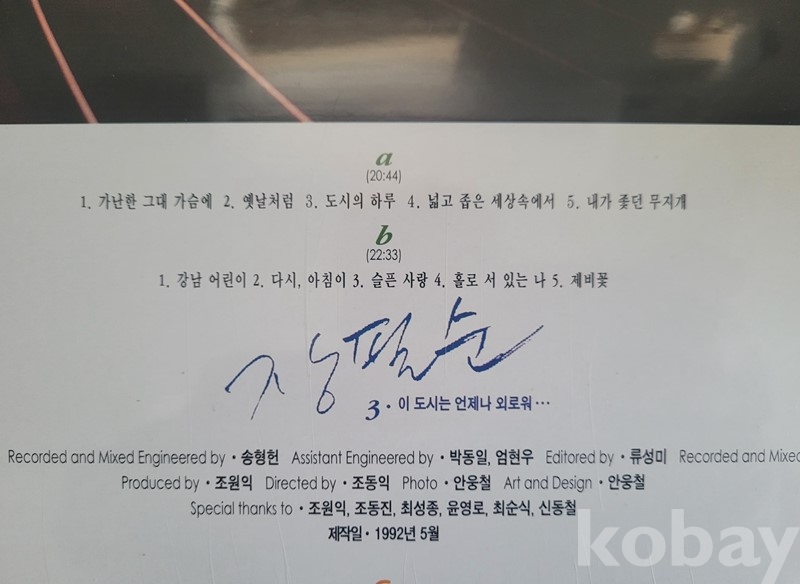 a
(20:44)
1. 가난한 그대 가슴에 2. 옛날처럼 3. 도시의 하루 4. 넓고 좁은 세상속에서 5. 내가 좇던 무지개
b
(22:33)
1. 강남 어린이 2. 다시, 아침이 3. 슬픈 사랑 4. 홀로 서 있는 나 5. 제비꽃
장필순
3 · 이 도시는 언제나 외로워···
Recorded and Mixed Engineered by · 송형헌 Assistant Engineered by · 박동일, 엄현우 Editored by · 류성미 Recorded and Mixed
Produced by · 조원익 Directed by · 조동익 Photo · 안웅철 Art and Design · 안웅철
Special thanks to · 조원익, 조동진, 최성종, 윤영로, 최순식, 신동철
제작일 · 1992년 5월
kobay